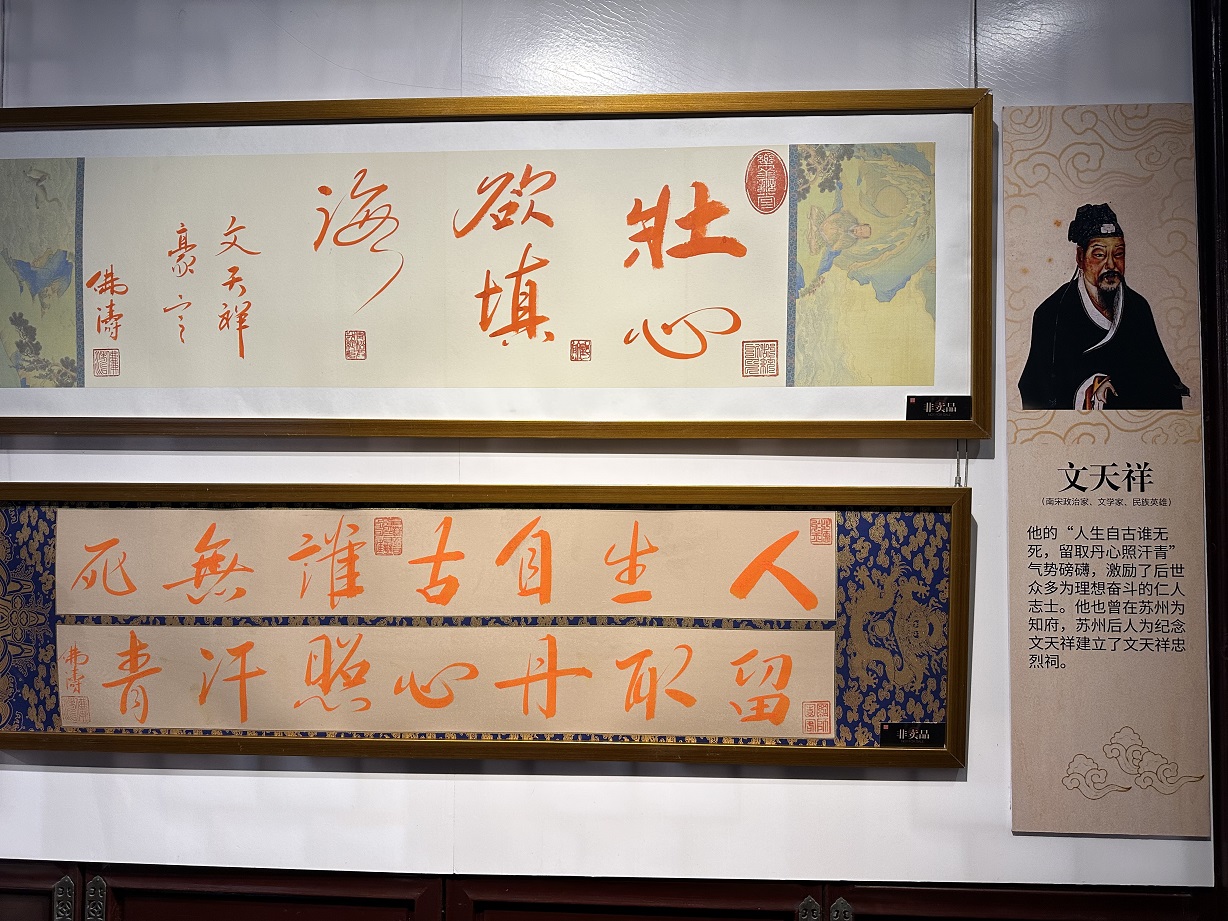 壮心
欲填
海
文天祥
豪言
佛濤
非卖品
人生自古誰無死
留取丹心照汗青
佛濤
非卖品
文天祥
（南宋政治家、文学家、民族英雄）
他的“人生自古谁无
死，留取丹心照汗青”
气势磅礴，激励了后世
众多为理想奋斗的仁人
志士。他也曾在苏州为
知府，苏州后人为纪念
文天祥建立了文天祥忠
烈祠。